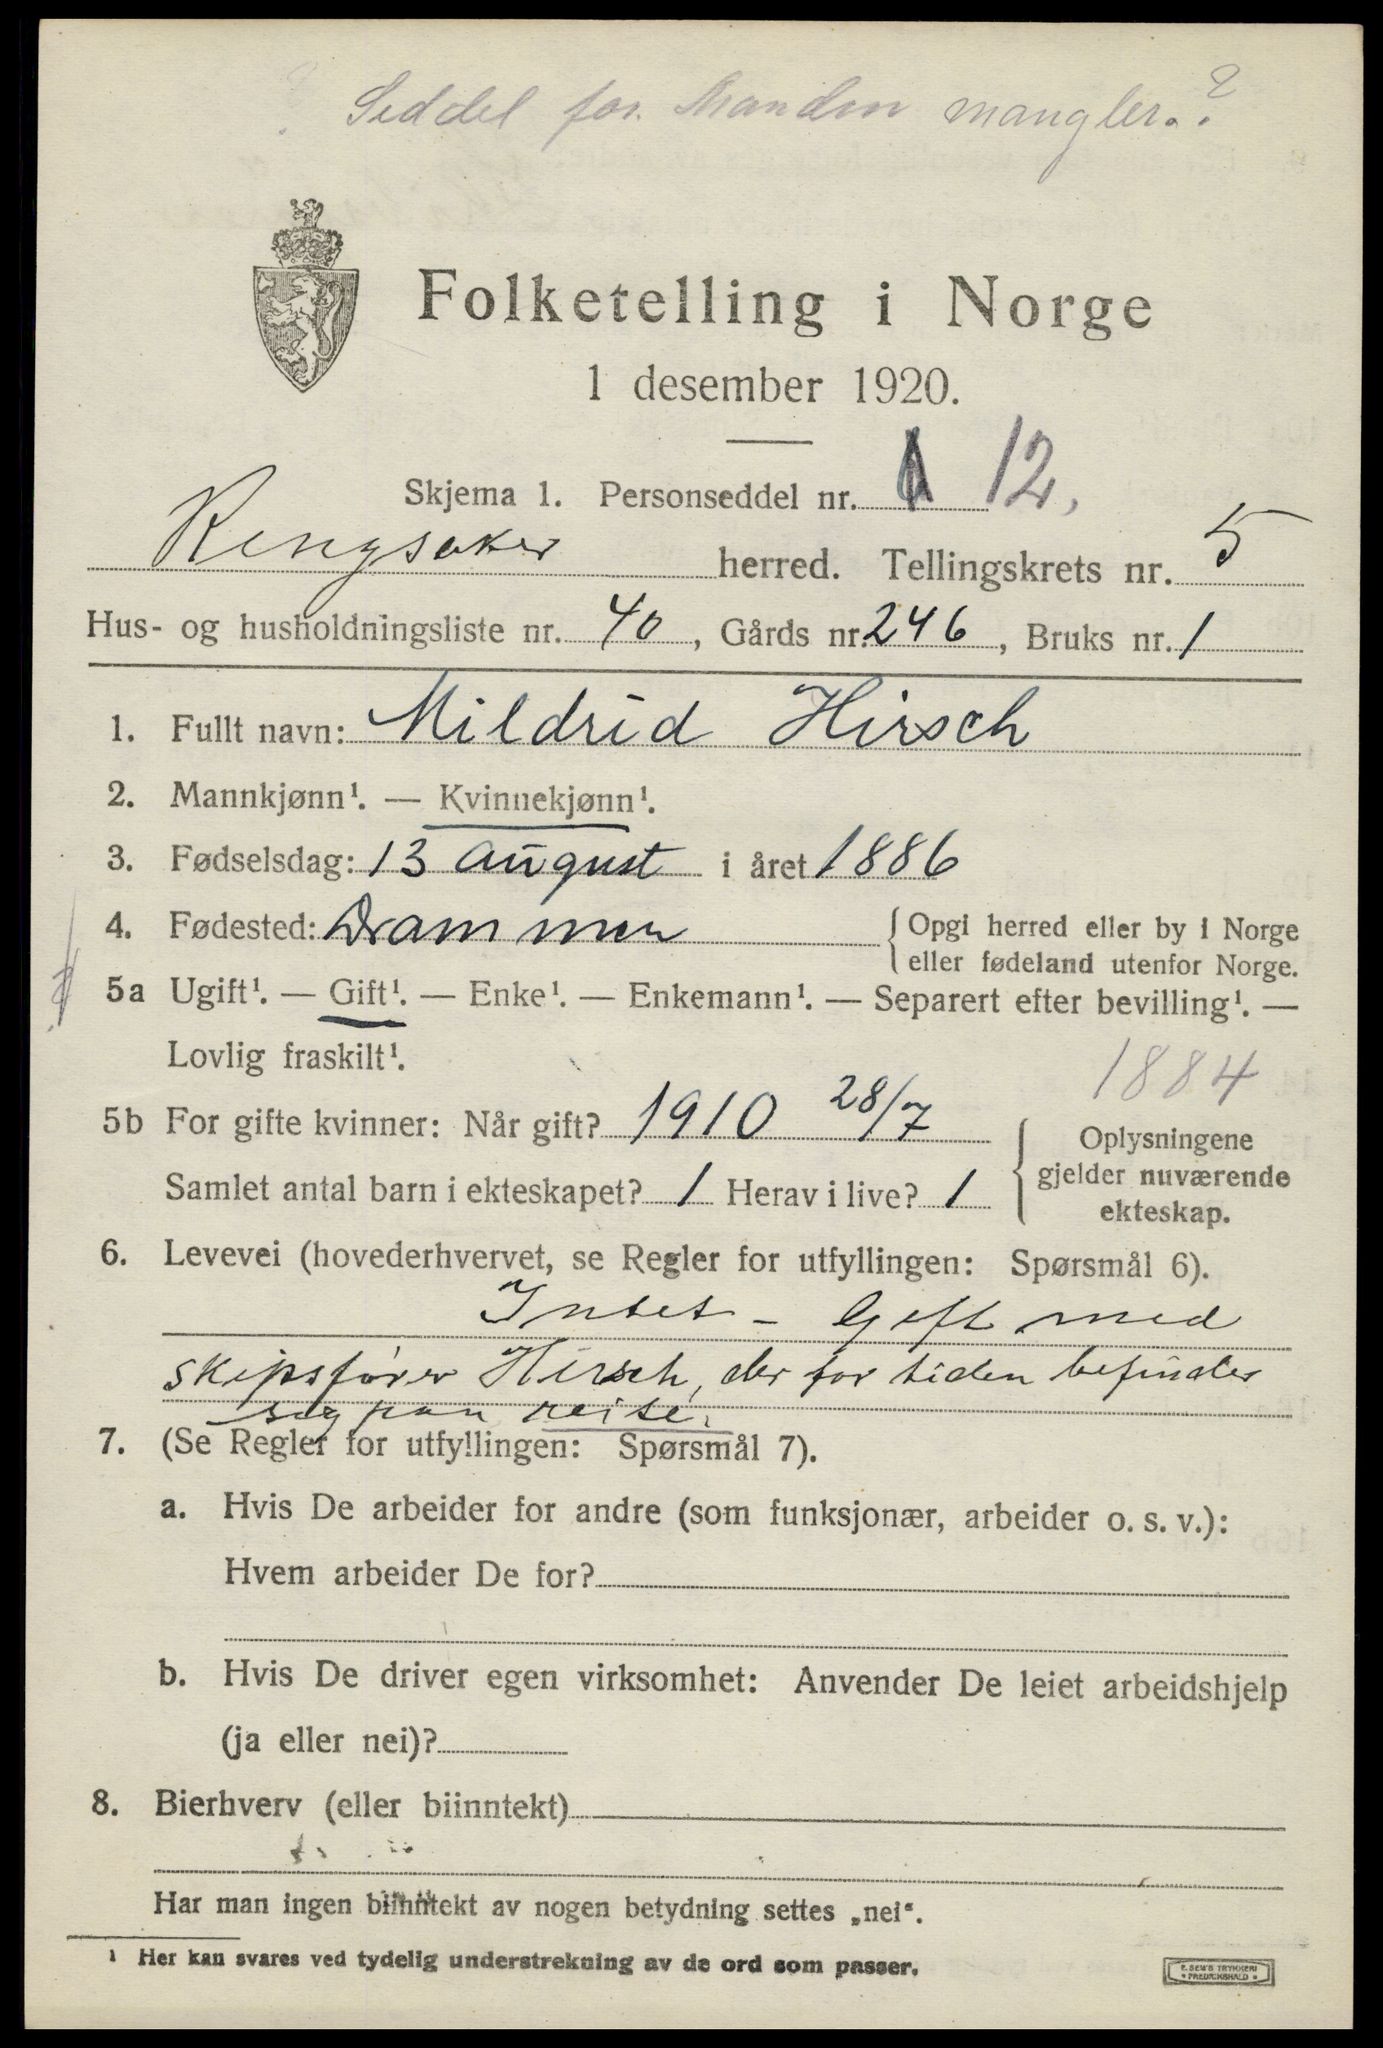 ? Seddel for Manden mangler.?
Folketelling i Norge
1 desember 1920.
Skjema 1. Personseddel nr. 12,
Ringsaker herred. Tellingskrets nr. 5
Hus- og husholdningsliste nr. 40, Gårds nr. 246, Bruks nr. 1
1. Fullt navn: Mildrid Hirsch
2. Mannkjønn¹. — Kvinnekjønn¹.
3. Fødselsdag: 13 august i året 1886
4. Fødested: Drammen { Opgi herred eller by i Norge
eller fødeland utenfor Norge.
5a Ugift¹. — Gift¹. — Enke¹. — Enkemann¹. — Separert efter bevilling¹. —
Lovlig fraskilt¹.
1884
5b For gifte kvinner: Når gift? 1910 28/7
Samlet antal barn i ekteskapet? 1 Herav i live? 1
{ Oplysningene
gjelder nuværende
ekteskap.
6. Levevei (hovederhvervet, se Regler for utfyllingen: Spørsmål 6).
Intet - Gift med
skipsfører Hirsch, der for tiden befinder
sig paa reise.
7. (Se Regler for utfyllingen: Spørsmål 7).
a. Hvis De arbeider for andre (som funksjonær, arbeider o. s. v.):
Hvem arbeider De for?
b. Hvis De driver egen virksomhet: Anvender De leiet arbeidshjelp
(ja eller nei)?
8. Bierhverv (eller biinntekt)
Har man ingen biinntekt av nogen betydning settes „nei“.
¹ Her kan svares ved tydelig understrekning av de ord som passer.
E. SEM'S TRYKKERI
* FREDRIKSHALD *